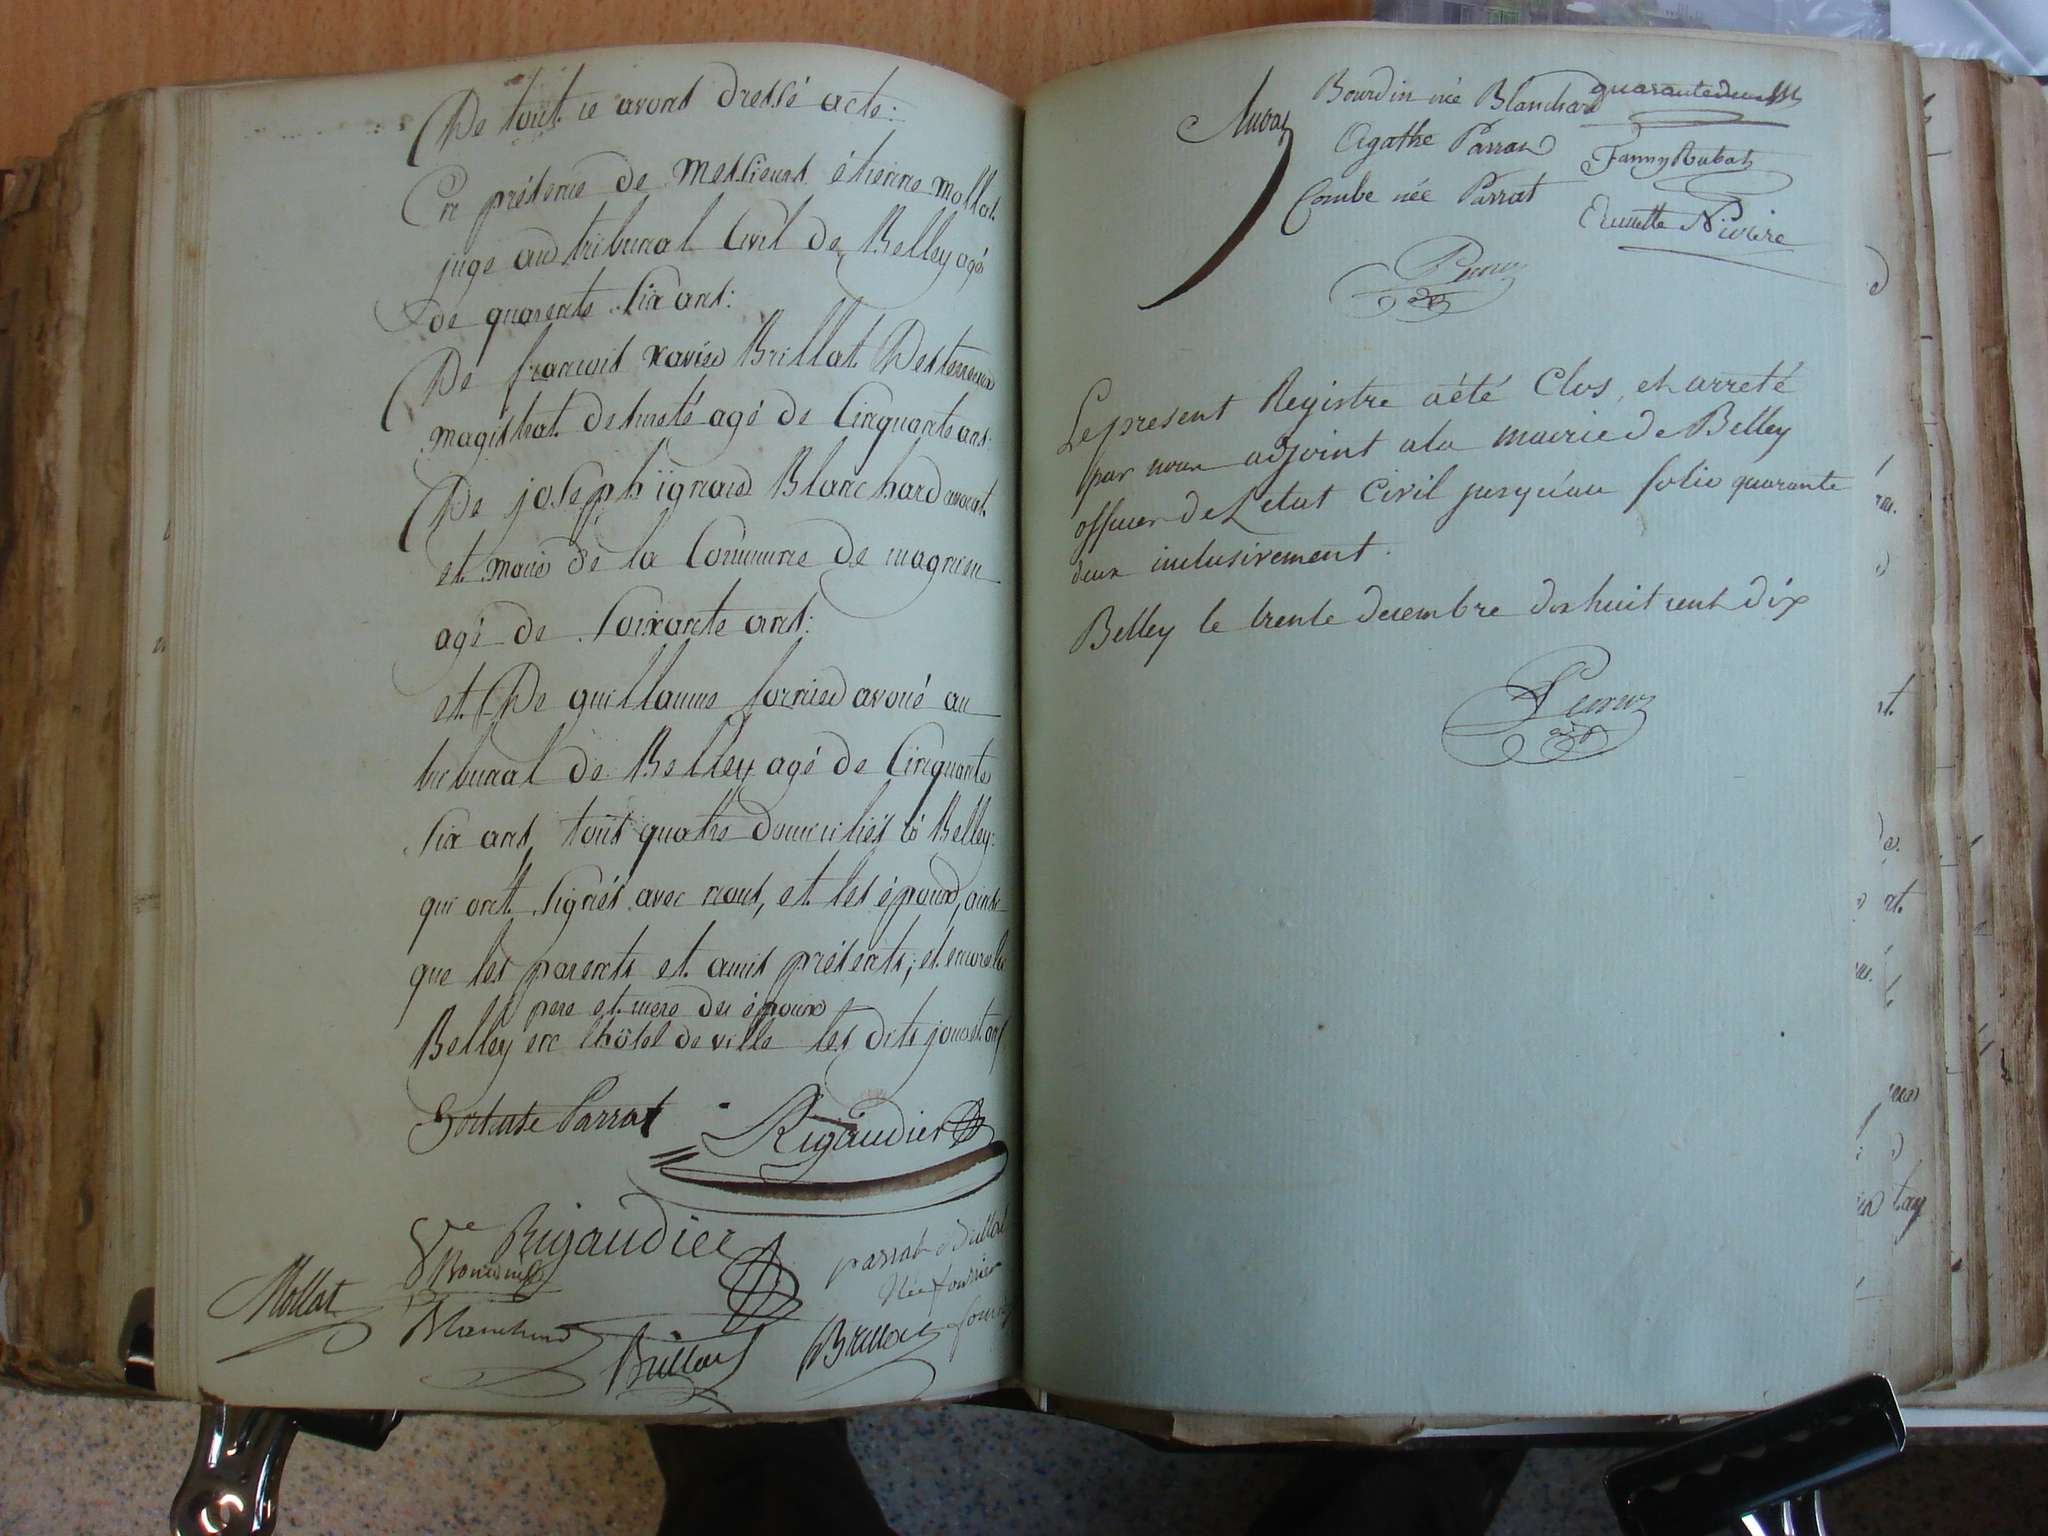 De tout ce avons dressé acte:
En présence de Messieurs étienne Mollat
juge au tribunal Civil de Belley agé
de quarente six ans:
De françois xavier Brillat Desterreaux
magistrat de sureté agé de Cinquante ans
De joseph ignace Blanchard avocat
et maire de la Commune de magnieu
agé de soixante ans:
et De guillaume fornier avoué au
tribunal de Belley agé de Cinquante
six ans, tous quatre domiciliés à Belley:
qui ont signés avec nous, et les époux, ainsi
que les parents et amis présents; et encore les
pere et mere des époux
Belley en l'hôtel de ville les dits jour et an
Hortense Parrat Rigaudier
Ve Rigaudier
parrat
née fournier
Mollat Blanchard Brillat Brillat
Bourdin née Blanchard quarante deux
Agathe Parrat Fanny Rubat
Combe née Parrat Nivière
Le present Registre a été Clos, et arreté
par nous adjoint a la mairie de Belley
officier de L'etat Civil jusqu'au folio quarante
deux inclusivement.
Belley le trente decembre dix huit cent dix